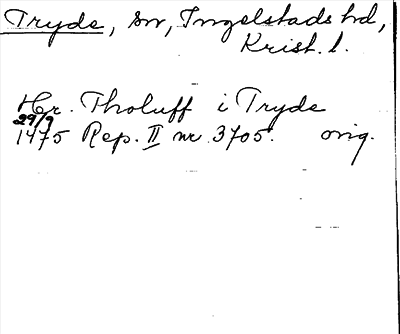 Tryde, sn, Ingelstads hd,
Krist. l.
Hr. Tholuff i Tryde
29/9
1475 Rep. II nr 3705. orig.